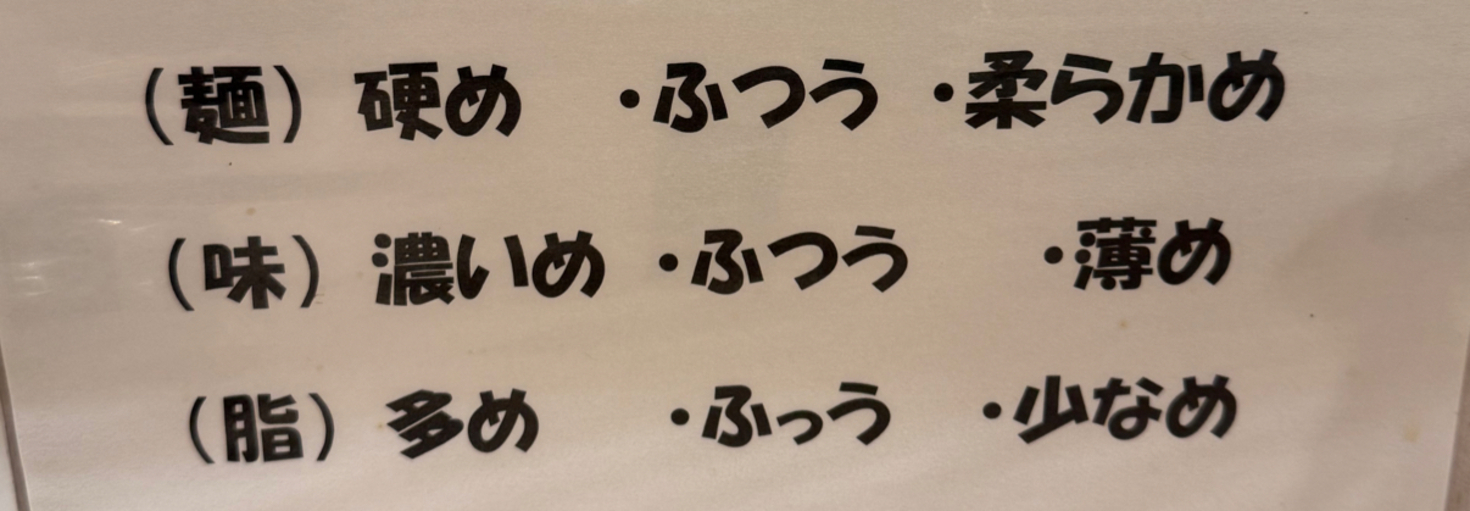 （麺）硬め ・ふつう ・柔らかめ
（味）濃いめ ・ふつう ・薄め
（脂）多め ・ふっう ・少なめ